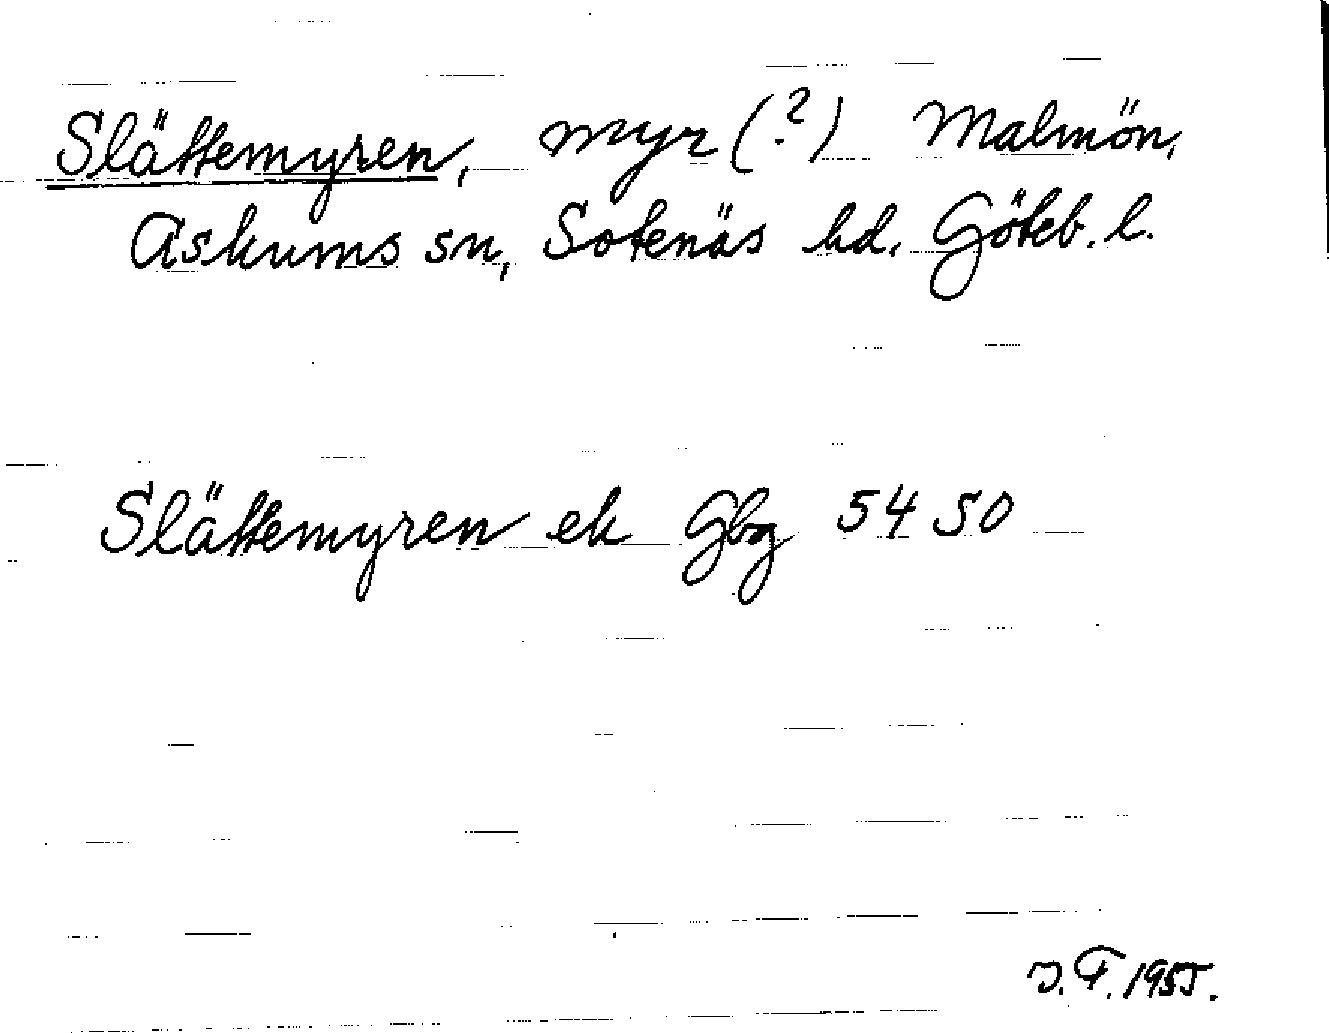 Slättemyren, myr (?) Malmön,
Askums sn, Sotenäs hd. Göteb. l.
Slättemyren ek Gbg 54 50
J. F. 1955.